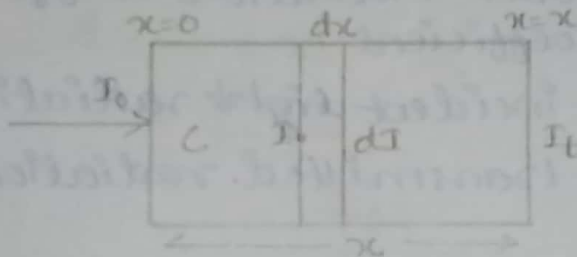 x=0 dx x=x
I₀
C I dI It
x